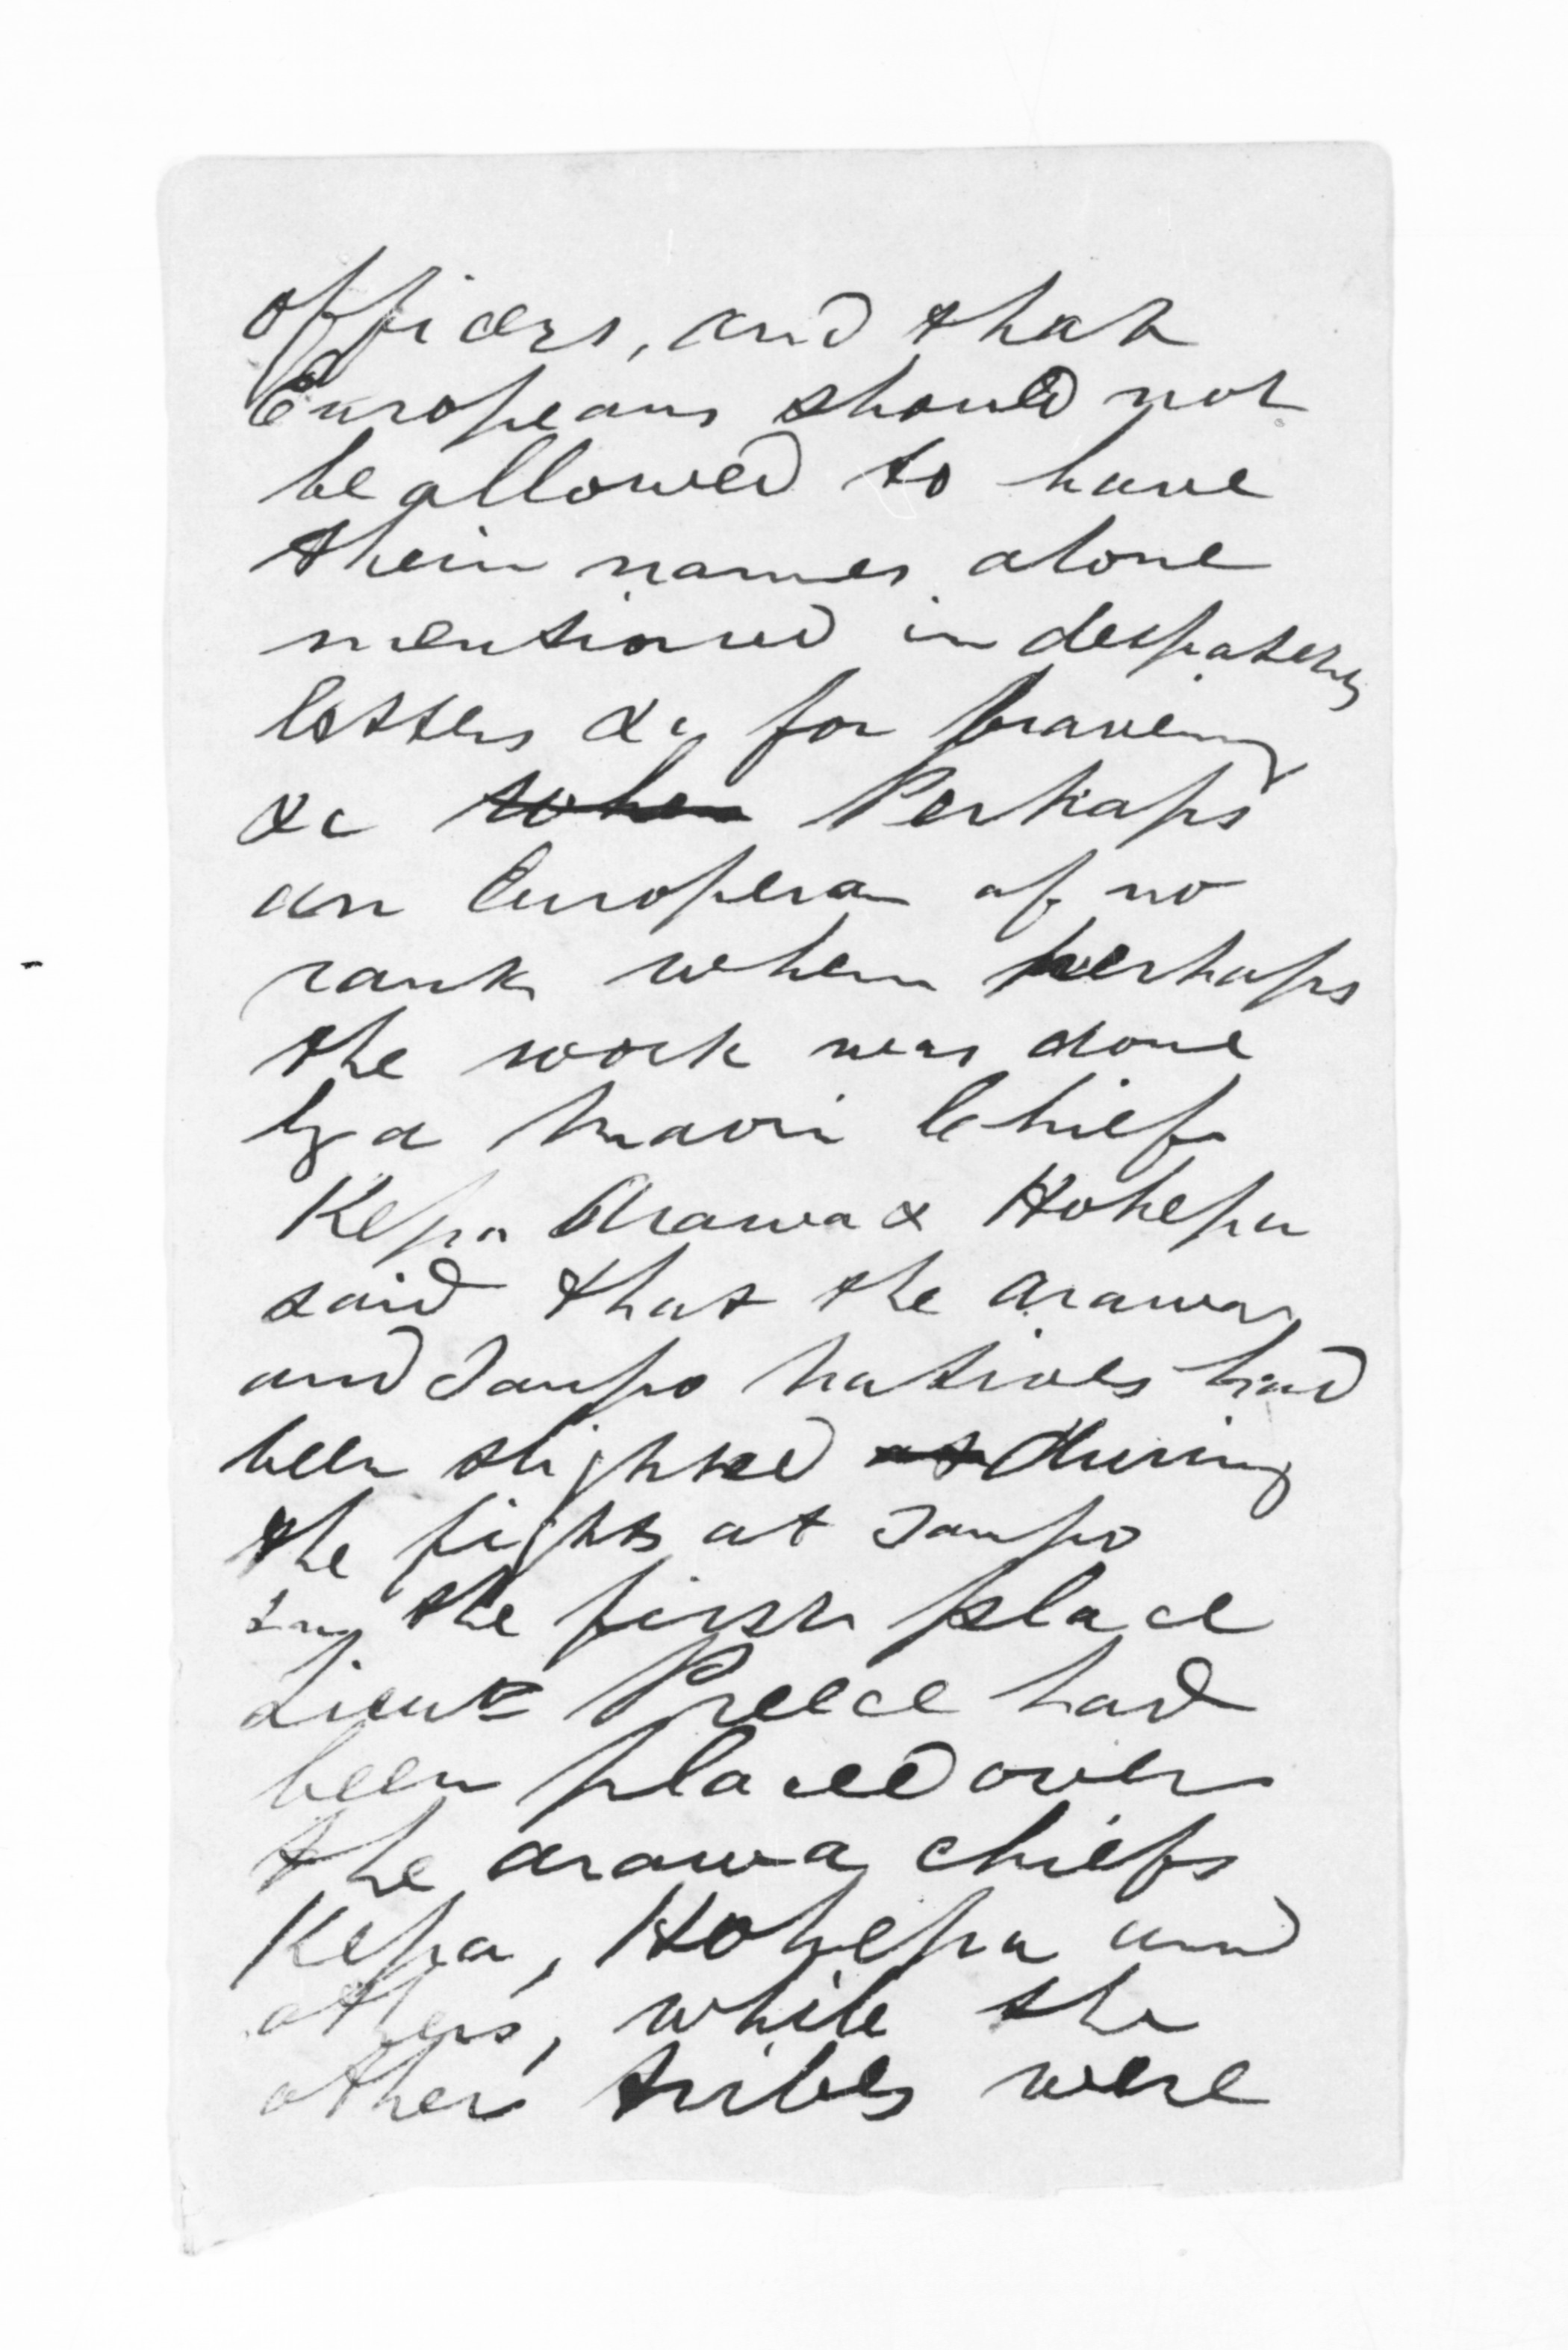 officers, and that
Europeans should not
be allowed to have
their names alone
mentioned in despatches
letters &c for bravery
&c when Perhaps
an European of no
rank when perhaps
the work was done
by a Maori Chief
Kepa Arawa & Hohepa
said that the Arawa
and Taupo natives had
been slighted at during
the fights at Taupo
In the first place
Lieut Preece had
been placed over
the Arawa chiefs
Kepa, Hohepa and
others, while the
other tribes were